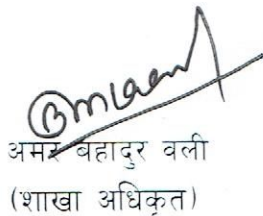 अमर बहादुर वली
(शाखा अधिकृत)